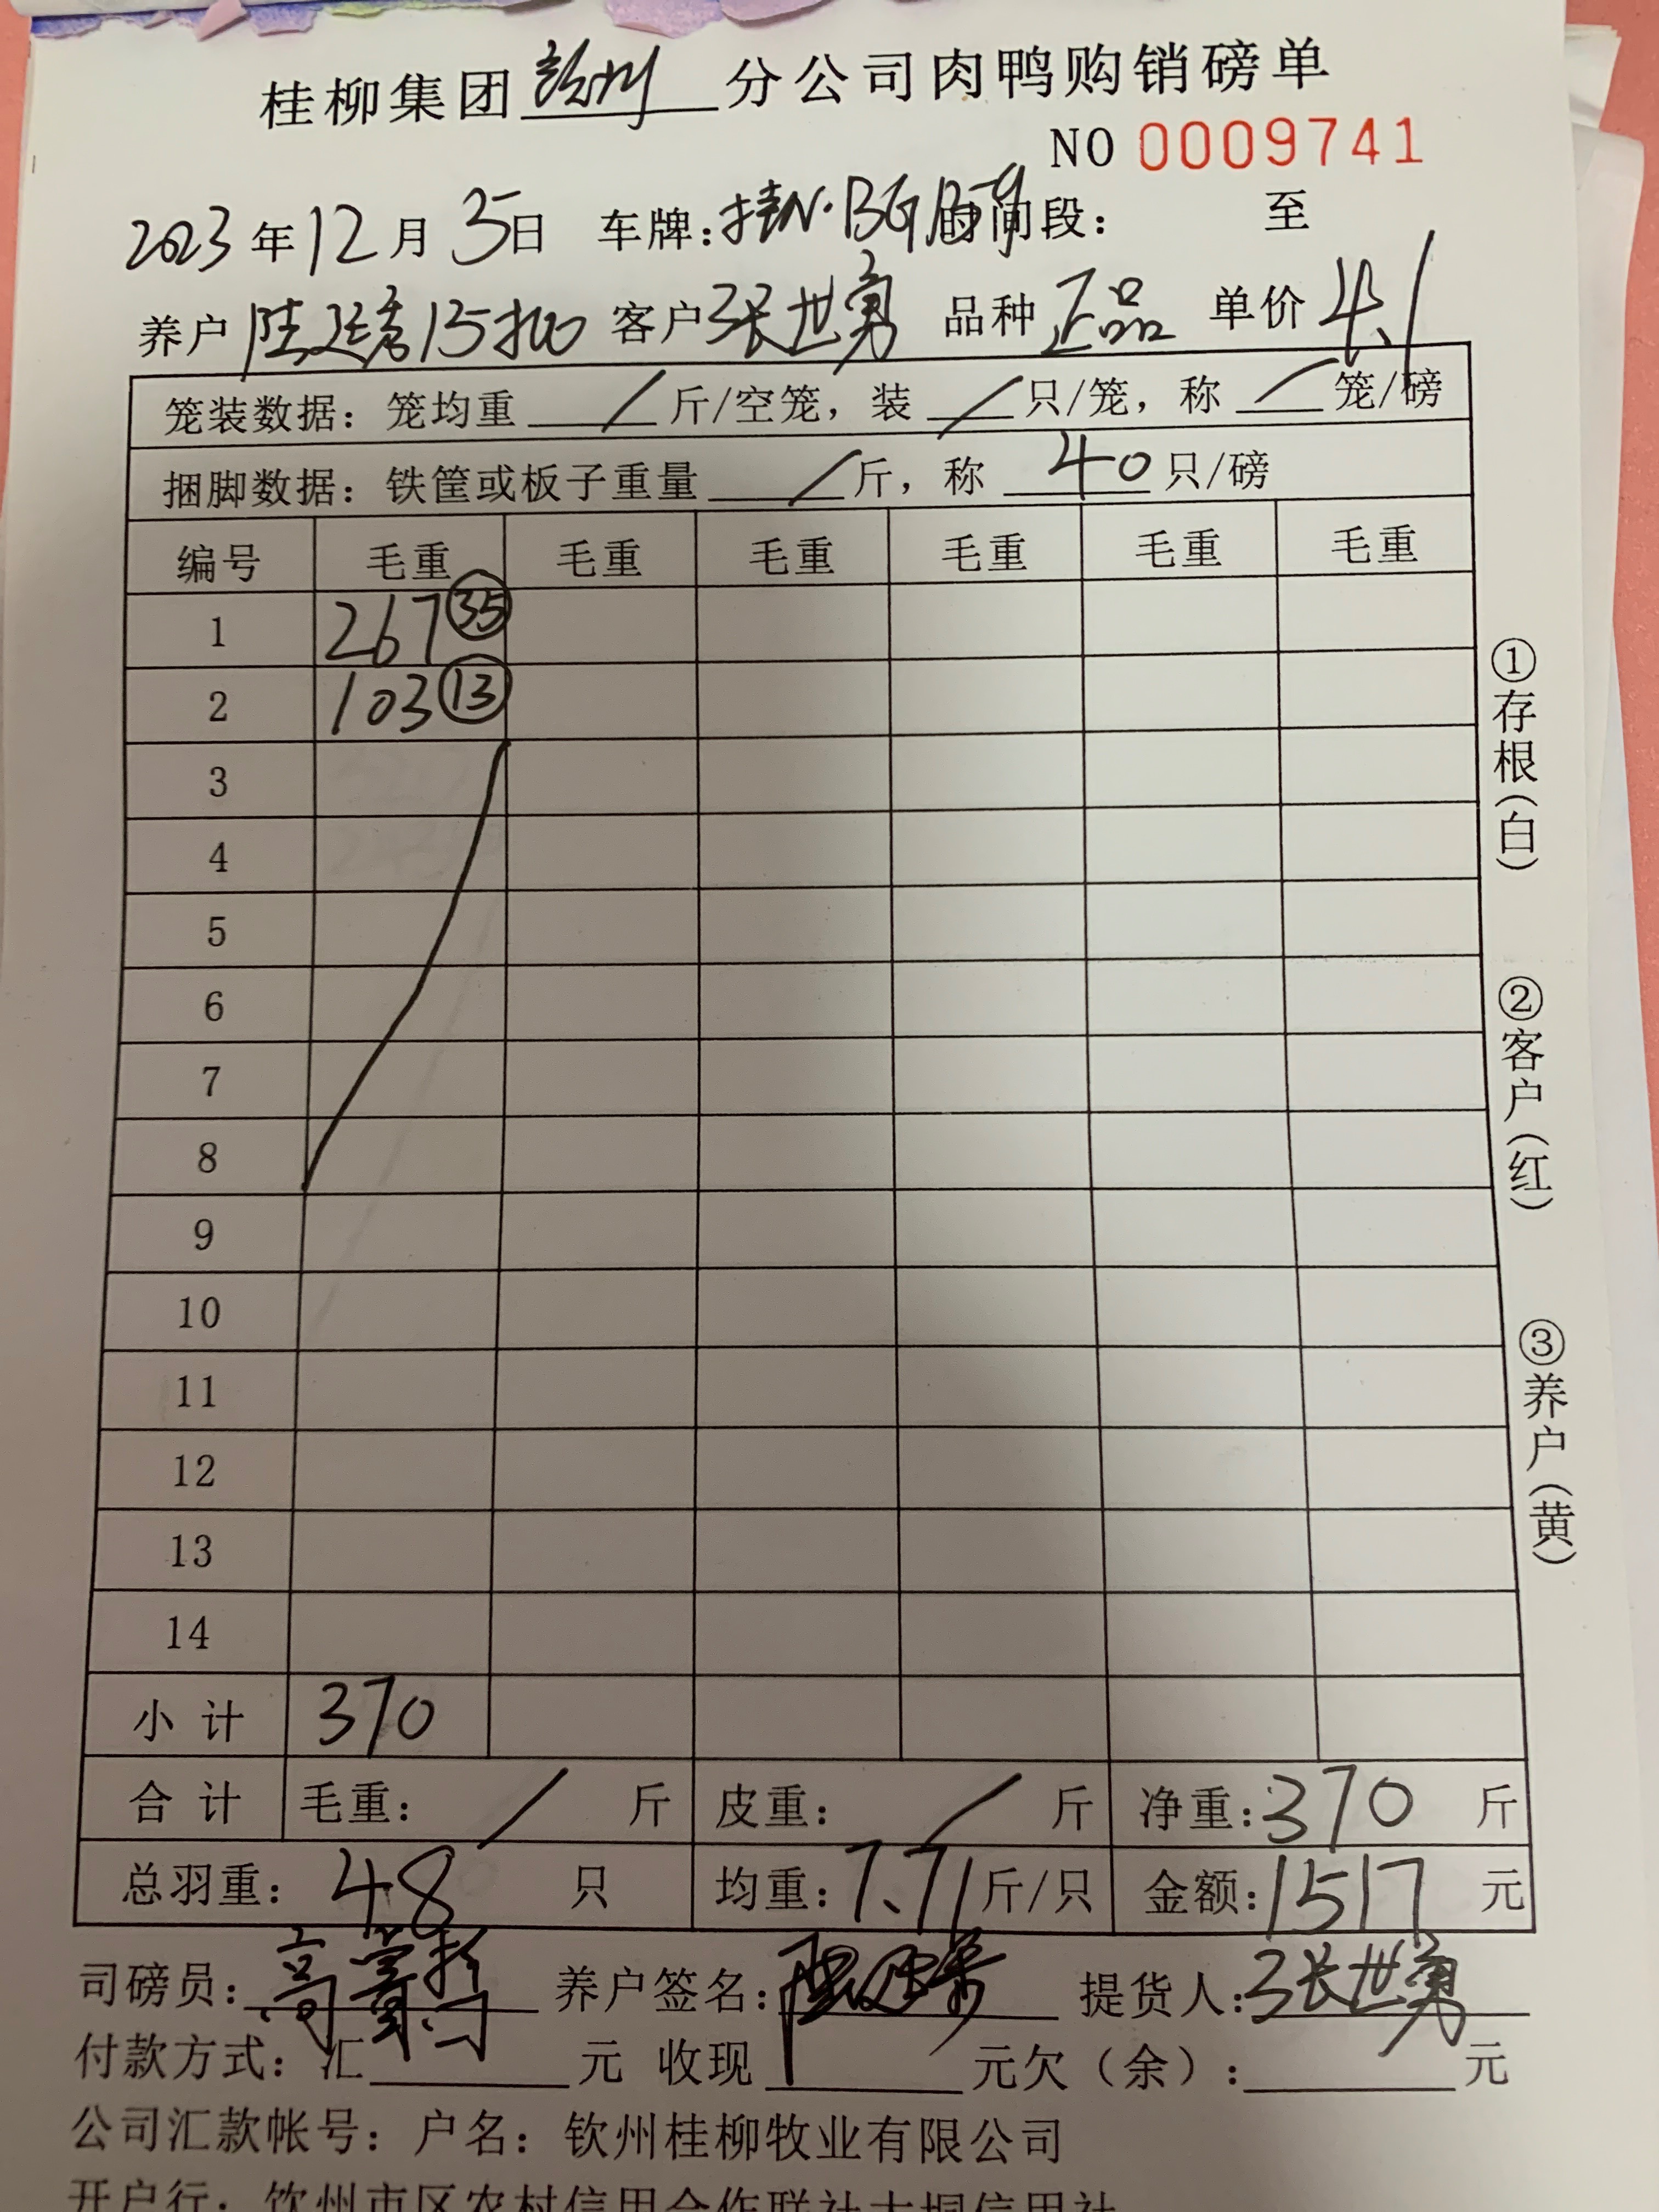 桂柳集团钦州分公司肉鸭购销磅单
NO 0009741
2023年12月5日 车牌:桂N· 时间段: 至
养户 15批 客户张世勇 品种正品 单价4.1
笼装数据: 笼均重/斤/空笼, 装/只/笼, 称/笼/磅
捆脚数据: 铁筐或板子重量/斤, 称40只/磅
编号 毛重 毛重 毛重 毛重 毛重 毛重
1 267 35
2 103 13
3
4
5
6
7
8
9
10
11
12
13
14
小计 370
合计 毛重: / 斤 皮重: / 斤 净重:370 斤
总羽重: 48 只 均重:7.71斤/只 金额:1517 元
司磅员: 养户签名: 提货人:张世勇
付款方式: 汇 元 收现 元欠(余): 元
公司汇款帐号: 户名: 钦州桂柳牧业有限公司
开户行: 钦州市区农村信用合作联社大垌信用社
①存根(白)
②客户(红)
③养户(黄)